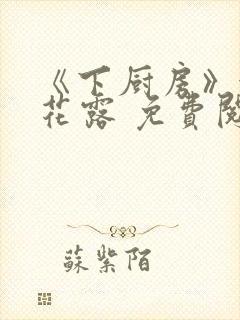 《下厨房》
花露 免費閱
蘇紫陌